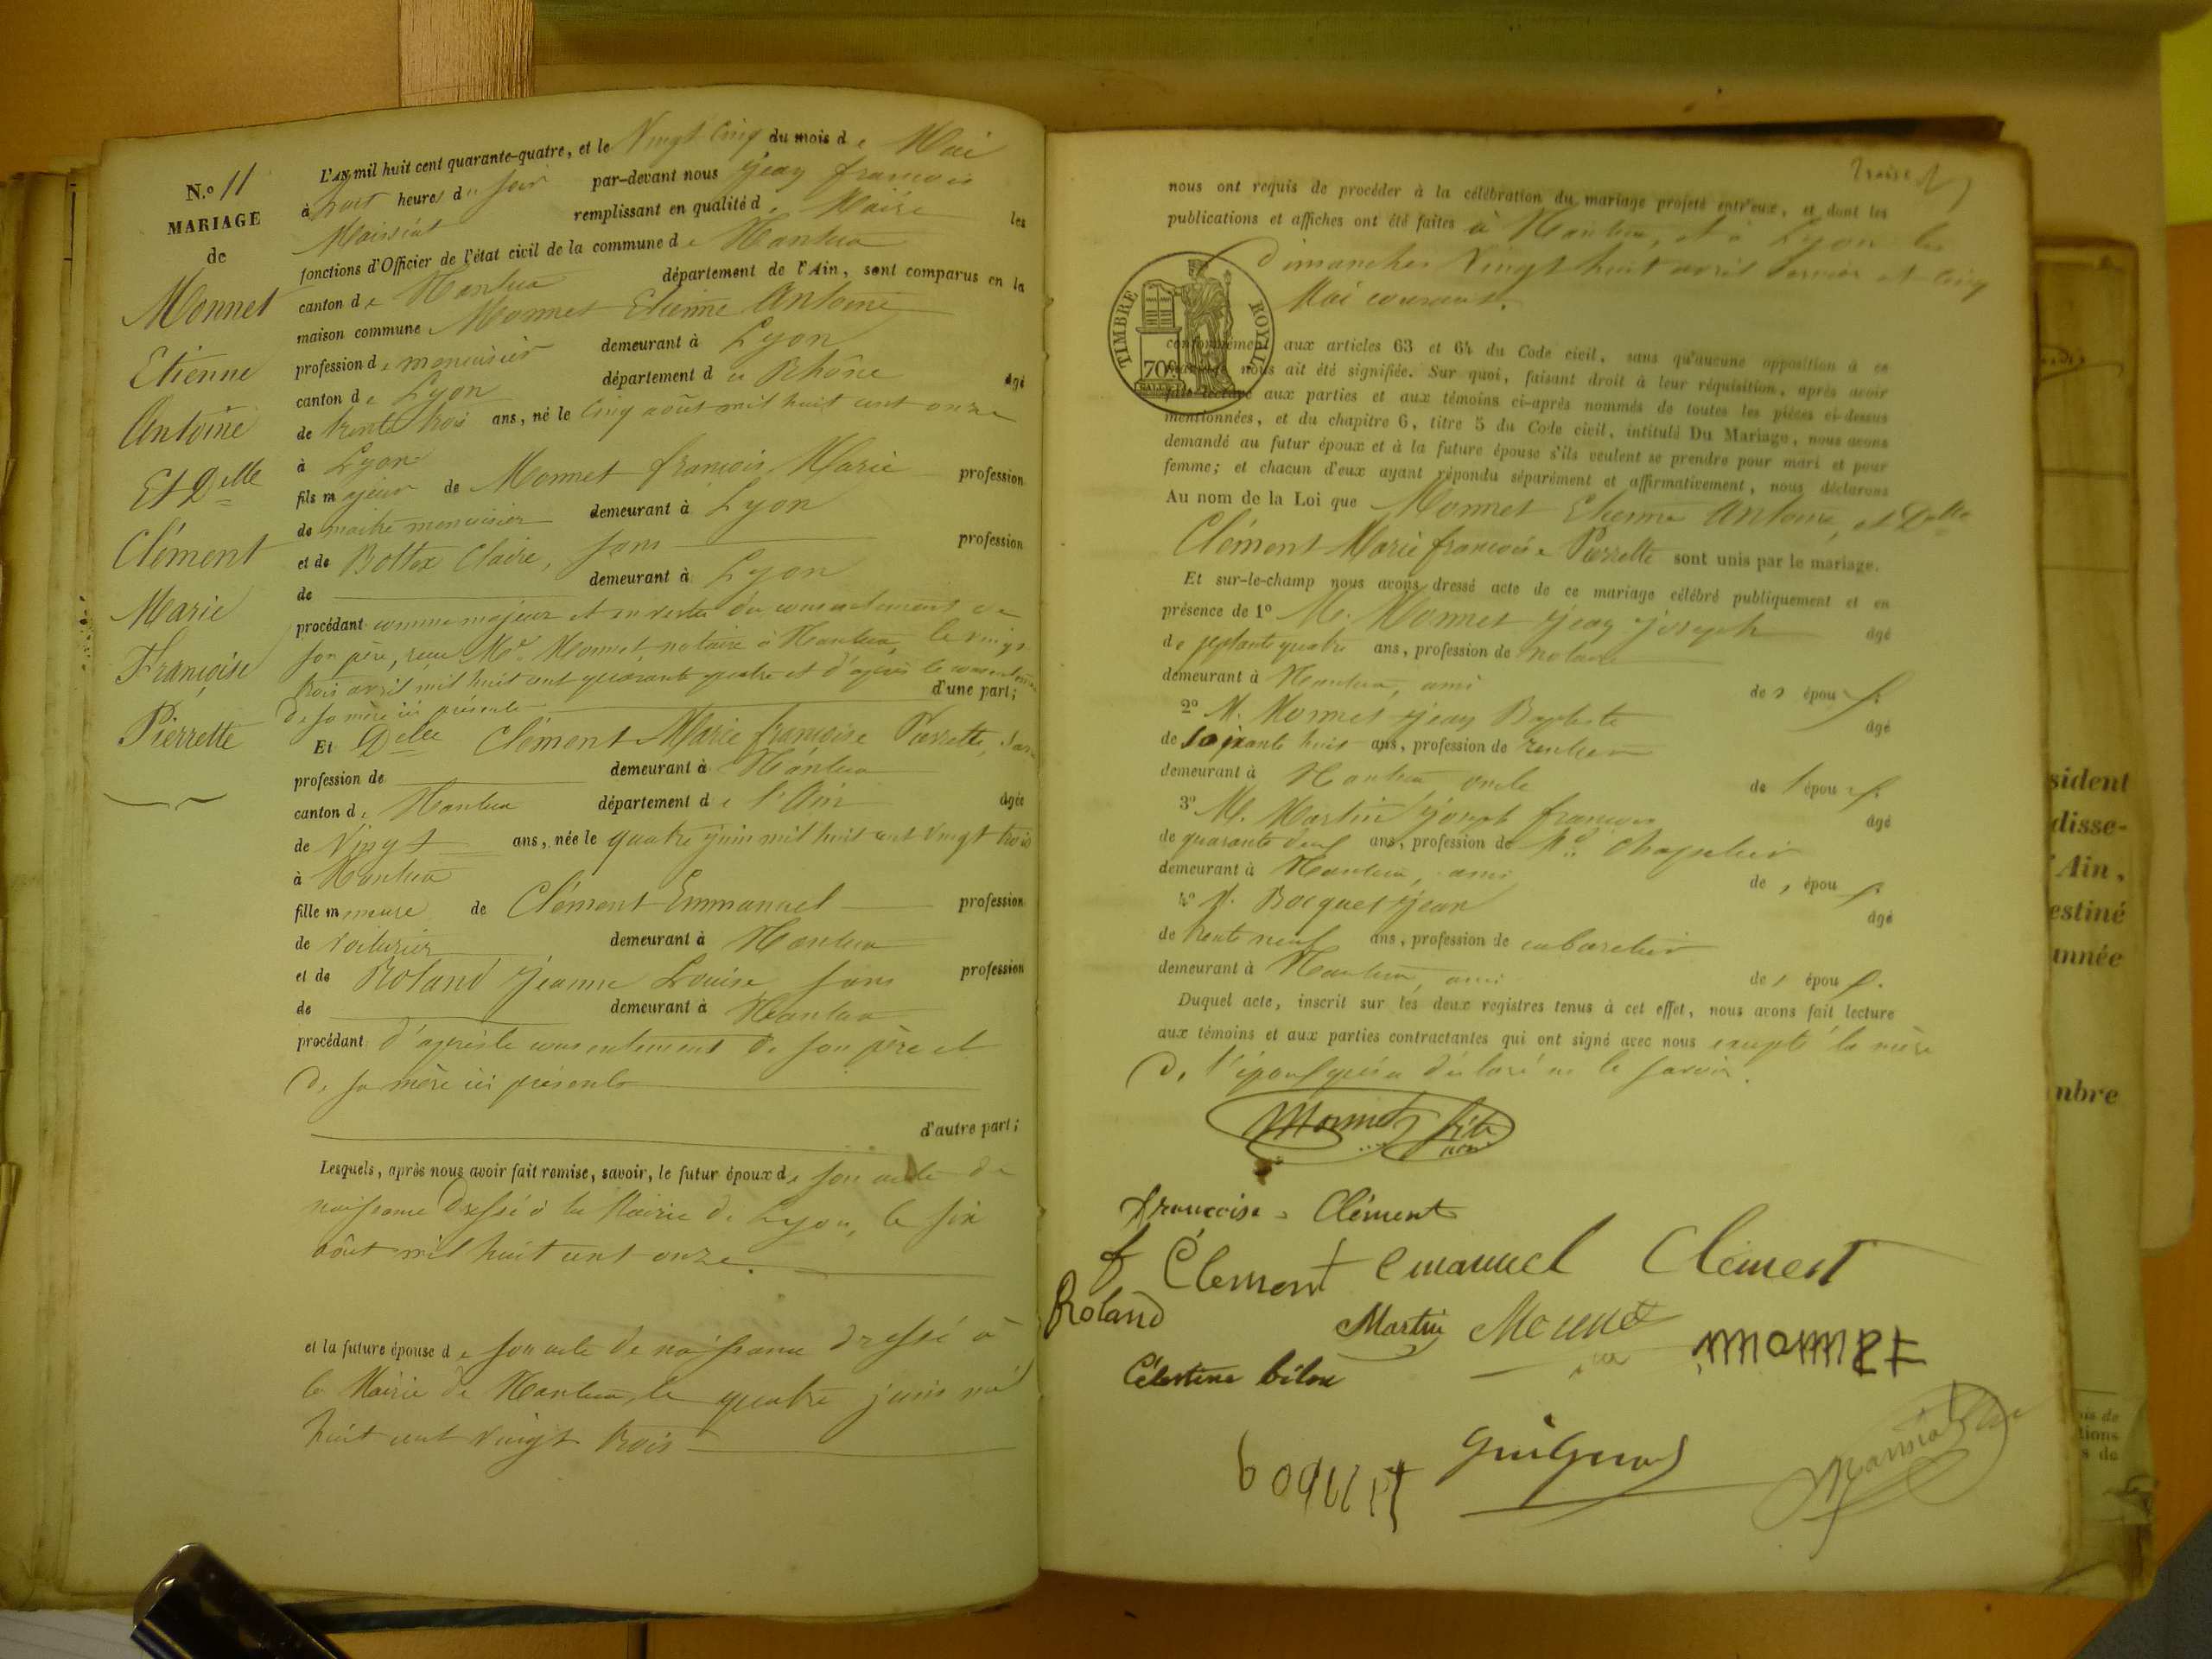 N.o 11
MARIAGE
de
Monnet
Etienne
Antoine
Et Delle
Clément
Marie
Françoise
Pierrette
L'AN mil huit cent quarante-quatre, et le Vingt cinq du mois de Mai
à huit heures du soir par-devant nous Jean françois
Maissiat remplissant en qualité de Maire les
fonctions d'Officier de l'état civil de la commune de Nantua
canton de Nantua département de l'Ain, sont comparus en la
maison commune Monnet Etienne Antoine
profession de menuisier demeurant à Lyon
canton de Lyon département du Rhône âgé
de trente trois ans, né le cinq août mil huit cent onze
à Lyon
fils majeur de Monnet françois Marie profession
de maître menuisier demeurant à Lyon
et de Bottex Claire, sans profession
de demeurant à Lyon
procédant comme majeur et en vertu du consentement de
son père, reçu Me Monnet notaire à Nantua, le vingt
trois avril mil huit cent quarante quatre et d'après le consentement
de sa mère ici présente d'une part;
Et Delle Clément Marie françoise Pierrette, sans
profession de demeurant à Nantua
canton de Nantua département de l'Ain âgée
de Vingt ans, née le quatre juin mil huit cent vingt trois
à Nantua
fille mineure de Clément Emmanuel profession
de voiturier demeurant à Nantua
et de Roland Jeanne Louise, sans profession
de demeurant à Nantua
procédant d'après le consentement de son père et
de sa mère ici présents
d'autre part;
Lesquels, après nous avoir fait remise, savoir, le futur époux de son acte de
naissance dressé à la Mairie de Lyon, le six
août mil huit cent onze.
et la future épouse de son acte de naissance dressé à
la Mairie de Nantua, le quatre juin mil
huit cent vingt trois
nous ont requis de procéder à la célébration du mariage projeté entr'eux, et dont les
publications et affiches ont été faites à Nantua, et à Lyon les
dimanches Vingt huit avril dernier et cinq
Mai courant.
TIMBRE ROYAL
70c
conformément aux articles 63 et 64 du Code civil, sans qu'aucune opposition à ce
mariage nous ait été signifiée. Sur quoi, faisant droit à leur réquisition, après avoir
fait lecture aux parties et aux témoins ci-après nommés de toutes les pièces ci-dessus
mentionnées, et du chapitre 6, titre 5 du Code civil, intitulé Du Mariage, nous avons
demandé au futur époux et à la future épouse s'ils veulent se prendre pour mari et pour
femme; et chacun d'eux ayant répondu séparément et affirmativement, nous déclarons
Au nom de la Loi que Monnet Etienne Antoine, et Delle
Clément Marie françoise Pierrette sont unis par le mariage.
Et sur-le-champ nous avons dressé acte de ce mariage célébré publiquement et en
présence de 1o Me. Monnet Jean Joseph âgé
de septante quatre ans, profession de notaire
demeurant à Nantua, ami des époux
2o M. Monnet Jean Baptiste âgé
de soixante huit ans, profession de rentier
demeurant à Nantua oncle de l'époux
3o M. Martin Joseph françois âgé
de quarante deux ans, profession de Md. Chapelier
demeurant à Nantua, ami des époux
4o M. Bocquet Jean âgé
de trente neuf ans, profession de cabaretier
demeurant à Nantua, ami des époux.
Duquel acte, inscrit sur les deux registres tenus à cet effet, nous avons fait lecture
aux témoins et aux parties contractantes qui ont signé avec nous excepté la mère
de l'époux qui a déclaré ne le savoir.
Monnet fils
françoise Clément
f Clement Emanuel Clement
Roland Martin Monnet monnet
Célestine
Guignard
sident
disse-
Ain,
estiné
année
mbre